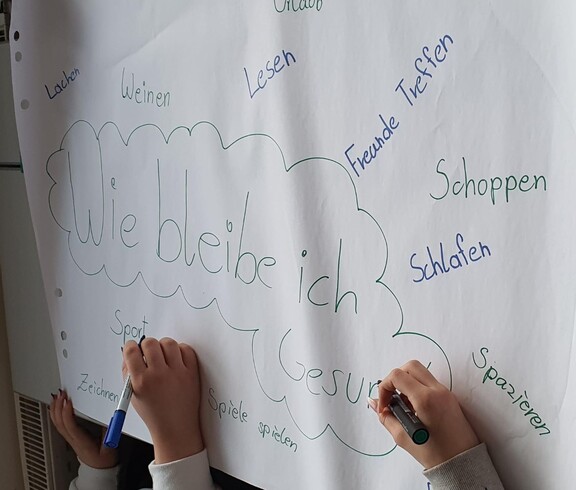 Urlaub
Lachen
Weinen
Lesen
Freunde Treffen
Schoppen
Wie bleibe ich
Schlafen
Sport
Zeichnen
Spiele spielen
Spazieren